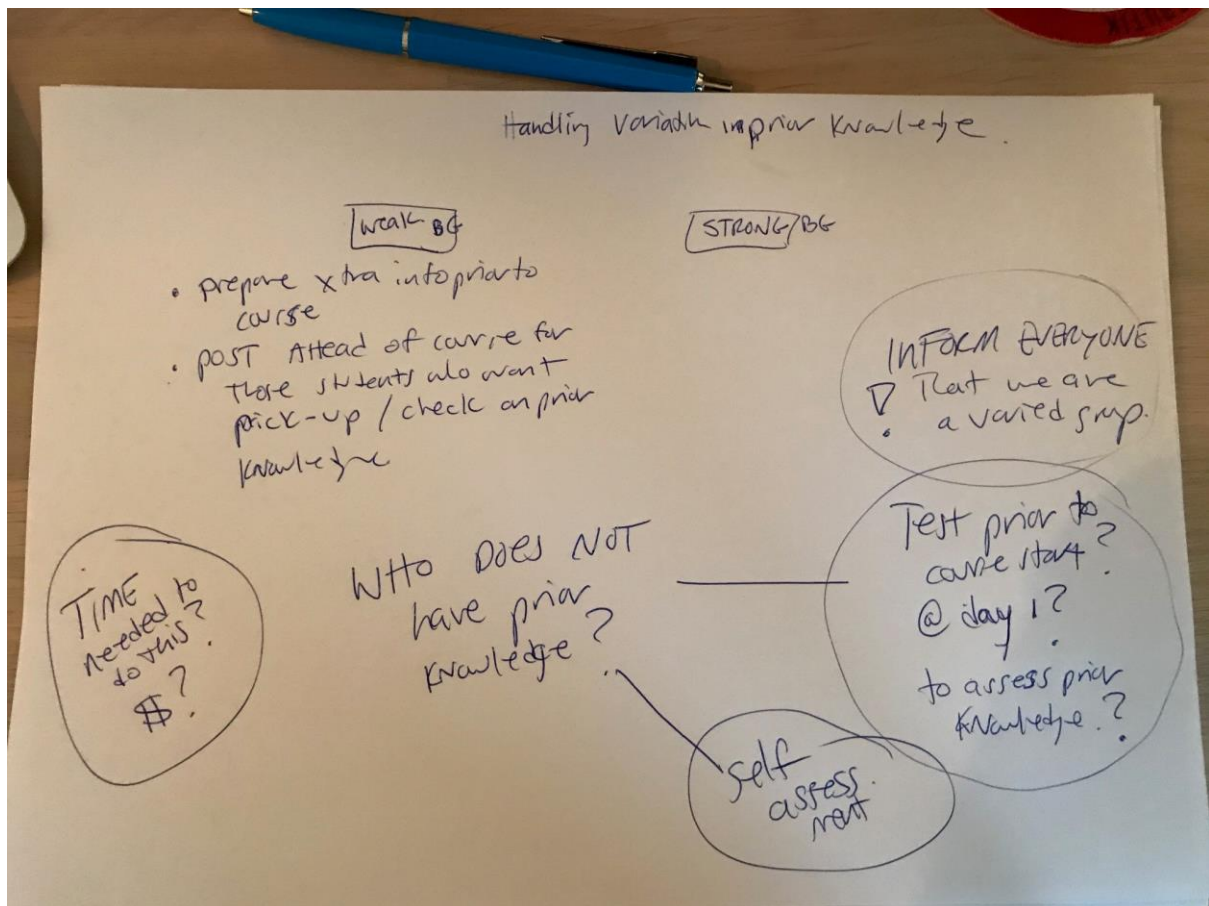 Handling Variation in prior Knowledge.
Weak BG
STRONG BG
• prepare xtra info prior to
course
• POST AHead of course for
those students who want
pick-up / check on prior
knowledge
INFORM EVERYONE
! That we are
a varied group.
WHO DOES NOT
have prior
knowledge?
Test prior to
course start?
@ day 1?
to assess prior
knowledge?
TIME
needed to
do this?
$?
self
assess.
ment